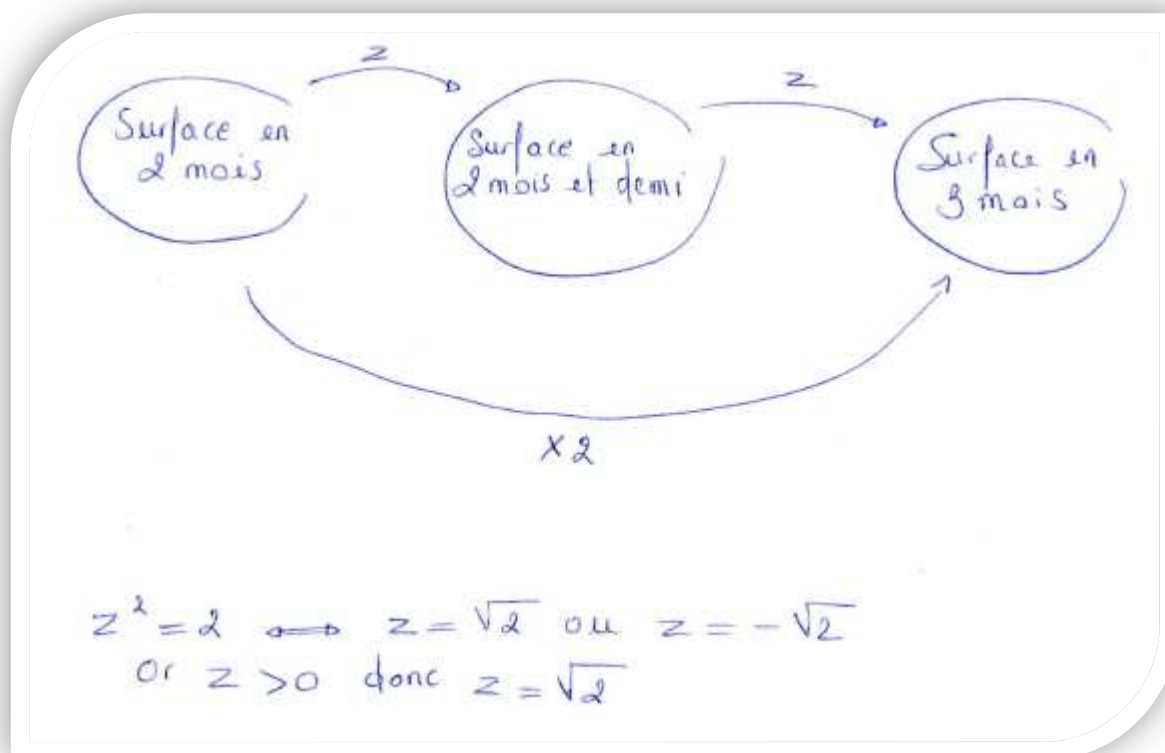 z
z
Surface en
2 mois
Surface en
2 mois et demi
Surface en
3 mois
× 2
z² = 2 ⟺ z = √2 ou z = -√2
or z > 0 donc z = √2